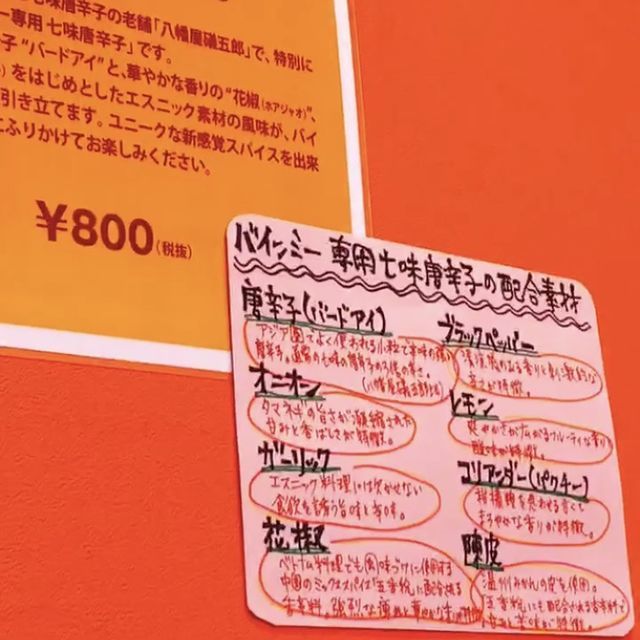 七味唐辛子の老舗「八幡屋礒五郎」で、特別に
ー専用 七味唐辛子」です。
子 “バードアイ”と、華やかな香りの“花椒(ホアジャオ)”、
をはじめとしたエスニック素材の風味が、バイ
引き立てます。ユニークな新感覚スパイスを出来
にふりかけてお楽しみください。
¥800(税抜)
バインミー 専用七味唐辛子の配合素材
唐辛子(バードアイ)
アジア圏でよく使われる小粒で辛味の強い
唐辛子。通常の七味の唐辛子の3倍の辛さ。
(八幡屋礒五郎比)
オニオン
タマネギの旨さが凝縮された
甘みと香ばしさが特徴。
ガーリック
エスニック料理には欠かせない
食欲を誘う旨味と辛味。
花椒
ベトナム料理でも肉味づけに使用する
中国のミックススパイス「五香粉」に配合される
香辛料。強烈な痺れと華やかな
ブラックペッパー
清涼感のある香りと刺激的な
辛さが特徴。
レモン
爽やかさが広がるフルーティな香り
酸味が特徴。
コリアンダー(パクチー)
柑橘類を思わせる甘くて
まろやかな香りが特徴。
陳皮
温州みかんの皮を使用。
五香粉にも配合される香辛料で
甘みと苦味が特徴。